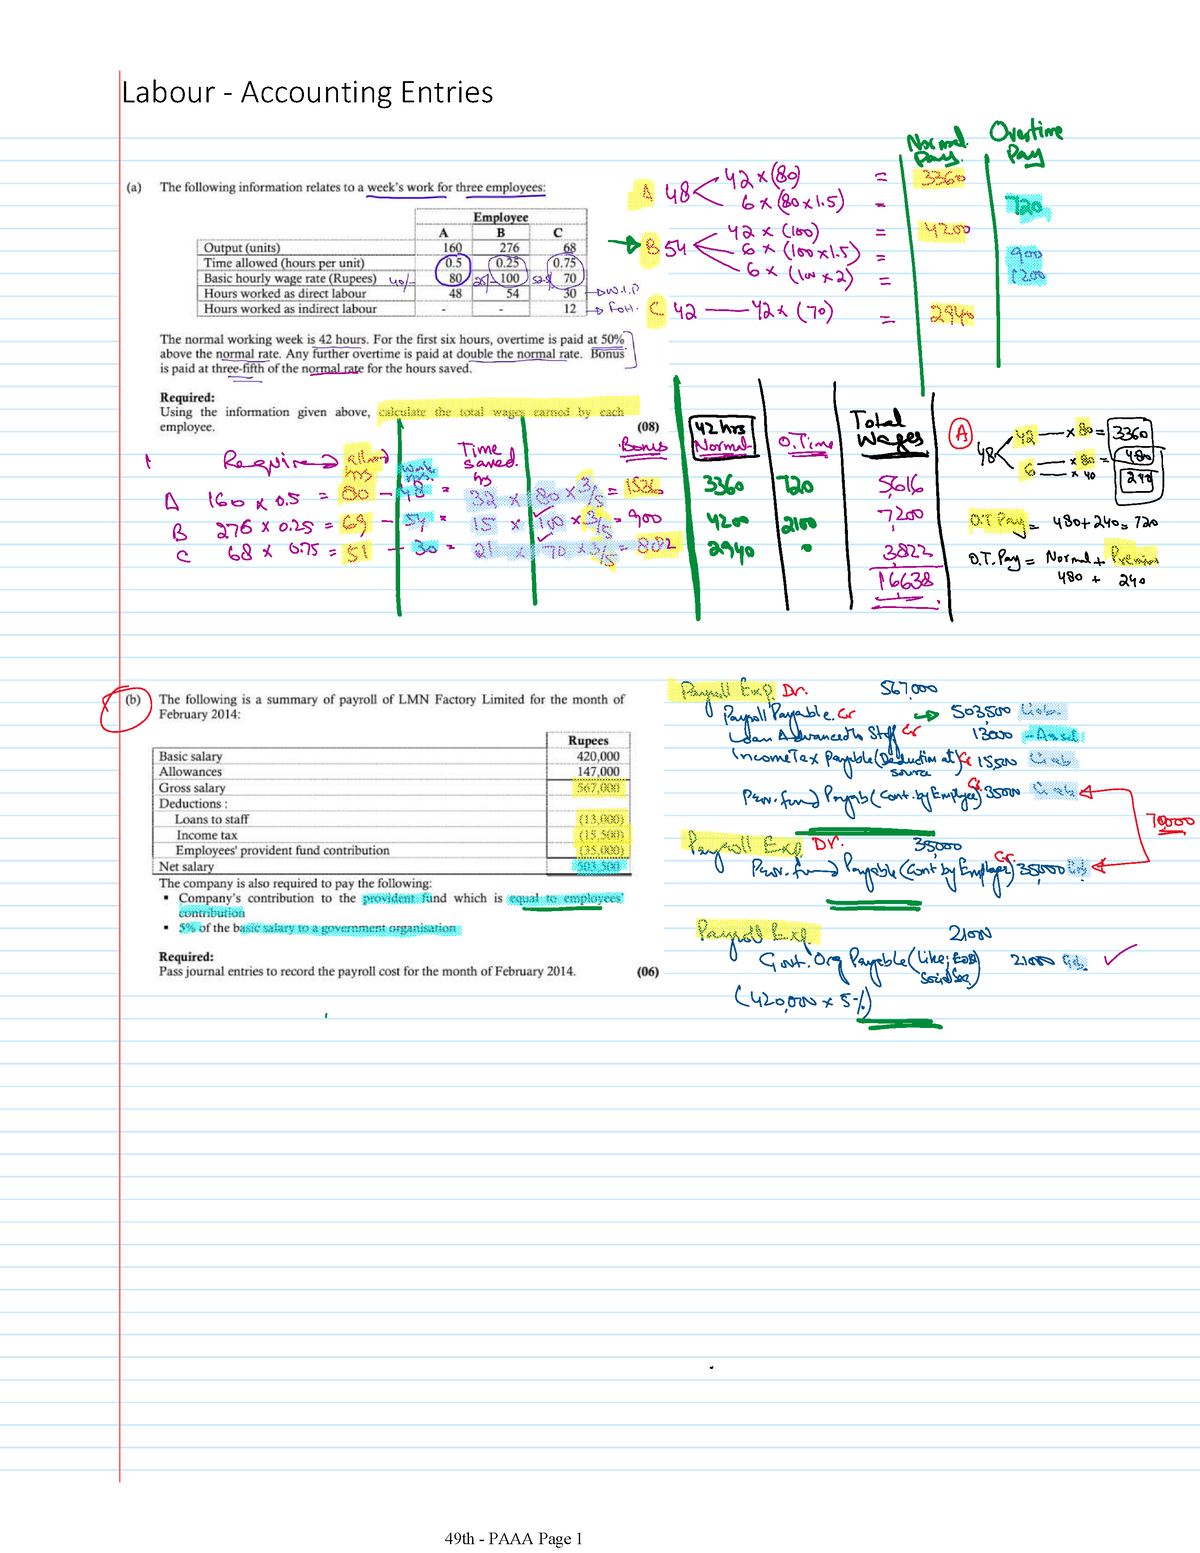 Labour - Accounting Entries
(a) The following information relates to a week's work for three employees:
Employee
A B C
Output (units) 160 276 68
Time allowed (hours per unit) 0.5 0.25 0.75
Basic hourly wage rate (Rupees) 40/- 80 25/- 100 52.5 70
Hours worked as direct labour 48 54 30 → W.I.P
Hours worked as indirect labour - - 12 → FOH.
The normal working week is 42 hours. For the first six hours, overtime is paid at 50%
above the normal rate. Any further overtime is paid at double the normal rate. Bonus
is paid at three-fifth of the normal rate for the hours saved.
Required:
Using the information given above, calculate the total wages earned by each
employee. (08)
Normal Pay. Overtime Pay
A 48 42 x (80) = 3360
6 x (80 x 1.5) = 720
B 54 42 x (100) = 4200
6 x (100 x 1.5) = 900
6 x (100 x 2) = 1200
C 42 — 42 x (70) = 2940
Required Allowed hrs Work Time saved. hrs Bonus 42 hrs Normal O.Time Total Wages
A 160 x 0.5 = 80 - 48 = 32 x 80 x 3/5 = 1536 3360 720 5616
B 276 x 0.25 = 69 - 54 = 15 x 100 x 3/5 = 900 4200 2100 7200
C 68 x 0.75 = 51 - 30 = 21 x 70 x 3/5 = 882 2940 0 3822
16638
A 48 42 — x 80 = 3360
6 — x 80 = 480
— x 40 240
O.T Pay = 480 + 240 = 720
O.T. Pay = Normal + Premium
480 + 240
(b) The following is a summary of payroll of LMN Factory Limited for the month of
February 2014:
Rupees
Basic salary 420,000
Allowances 147,000
Gross salary 567,000
Deductions :
Loans to staff (13,000)
Income tax (15,500)
Employees' provident fund contribution (35,000)
Net salary 503,500
The company is also required to pay the following:
▪ Company's contribution to the provident fund which is equal to employees'
contribution
▪ 5% of the basic salary to a government organisation
Required:
Pass journal entries to record the payroll cost for the month of February 2014. (06)
Payroll Exp. Dr. 567,000
Payroll Payable. Cr → 503,500 Liab.
Loan Advanced to Staff Cr 13000 - Asset
Income Tax Payable (Deduction at source) Cr 15,500 Liab
Prov. fund Payab (Cont. by Employee) Cr. 35000 Liab
70000
Payroll Exp Dr. 35,000
Prov. fund Payable (Cont by Employer) Cr. 35000 Liab
Payroll Exp. 21000
Govt. Org Payable (Like; EOBI Social Sec) 21000 Liab.
(420,000 x 5%)
49th - PAAA Page 1